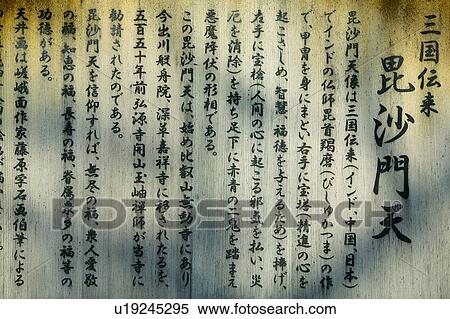 三国伝来
毘沙門天
毘沙門天像は三国伝来(インド、中国、日本)
でインドの仏師毘首羯磨(びしゅかつま)の作
で、甲冑を身にまとい右手に宝塔(精進の心を
起こさしめ、智慧、福徳を与えるため)を捧げ、
左手に宝槍(人間の心に起こる邪道を払い、災
厄を消除)を持ち足下に赤青の二鬼を踏まえ
悪魔降伏の形相である。
この毘沙門天は、始め比叡山無動寺にあり
今出川般舟院、深草嘉祥寺に移されたるを、
五百五十年前弘源寺開山玉岫禅師が当寺に
勧請されたのである。
毘沙門天を信仰すれば、無尽の福、衆人愛敬
の福、知恵の福、長寿の福、眷属衆多の福等の
功徳がある。
天井画は嵯峨面作家藤原孚石画伯筆による
FOTOSEARCH
u19245295
www.fotosearch.com